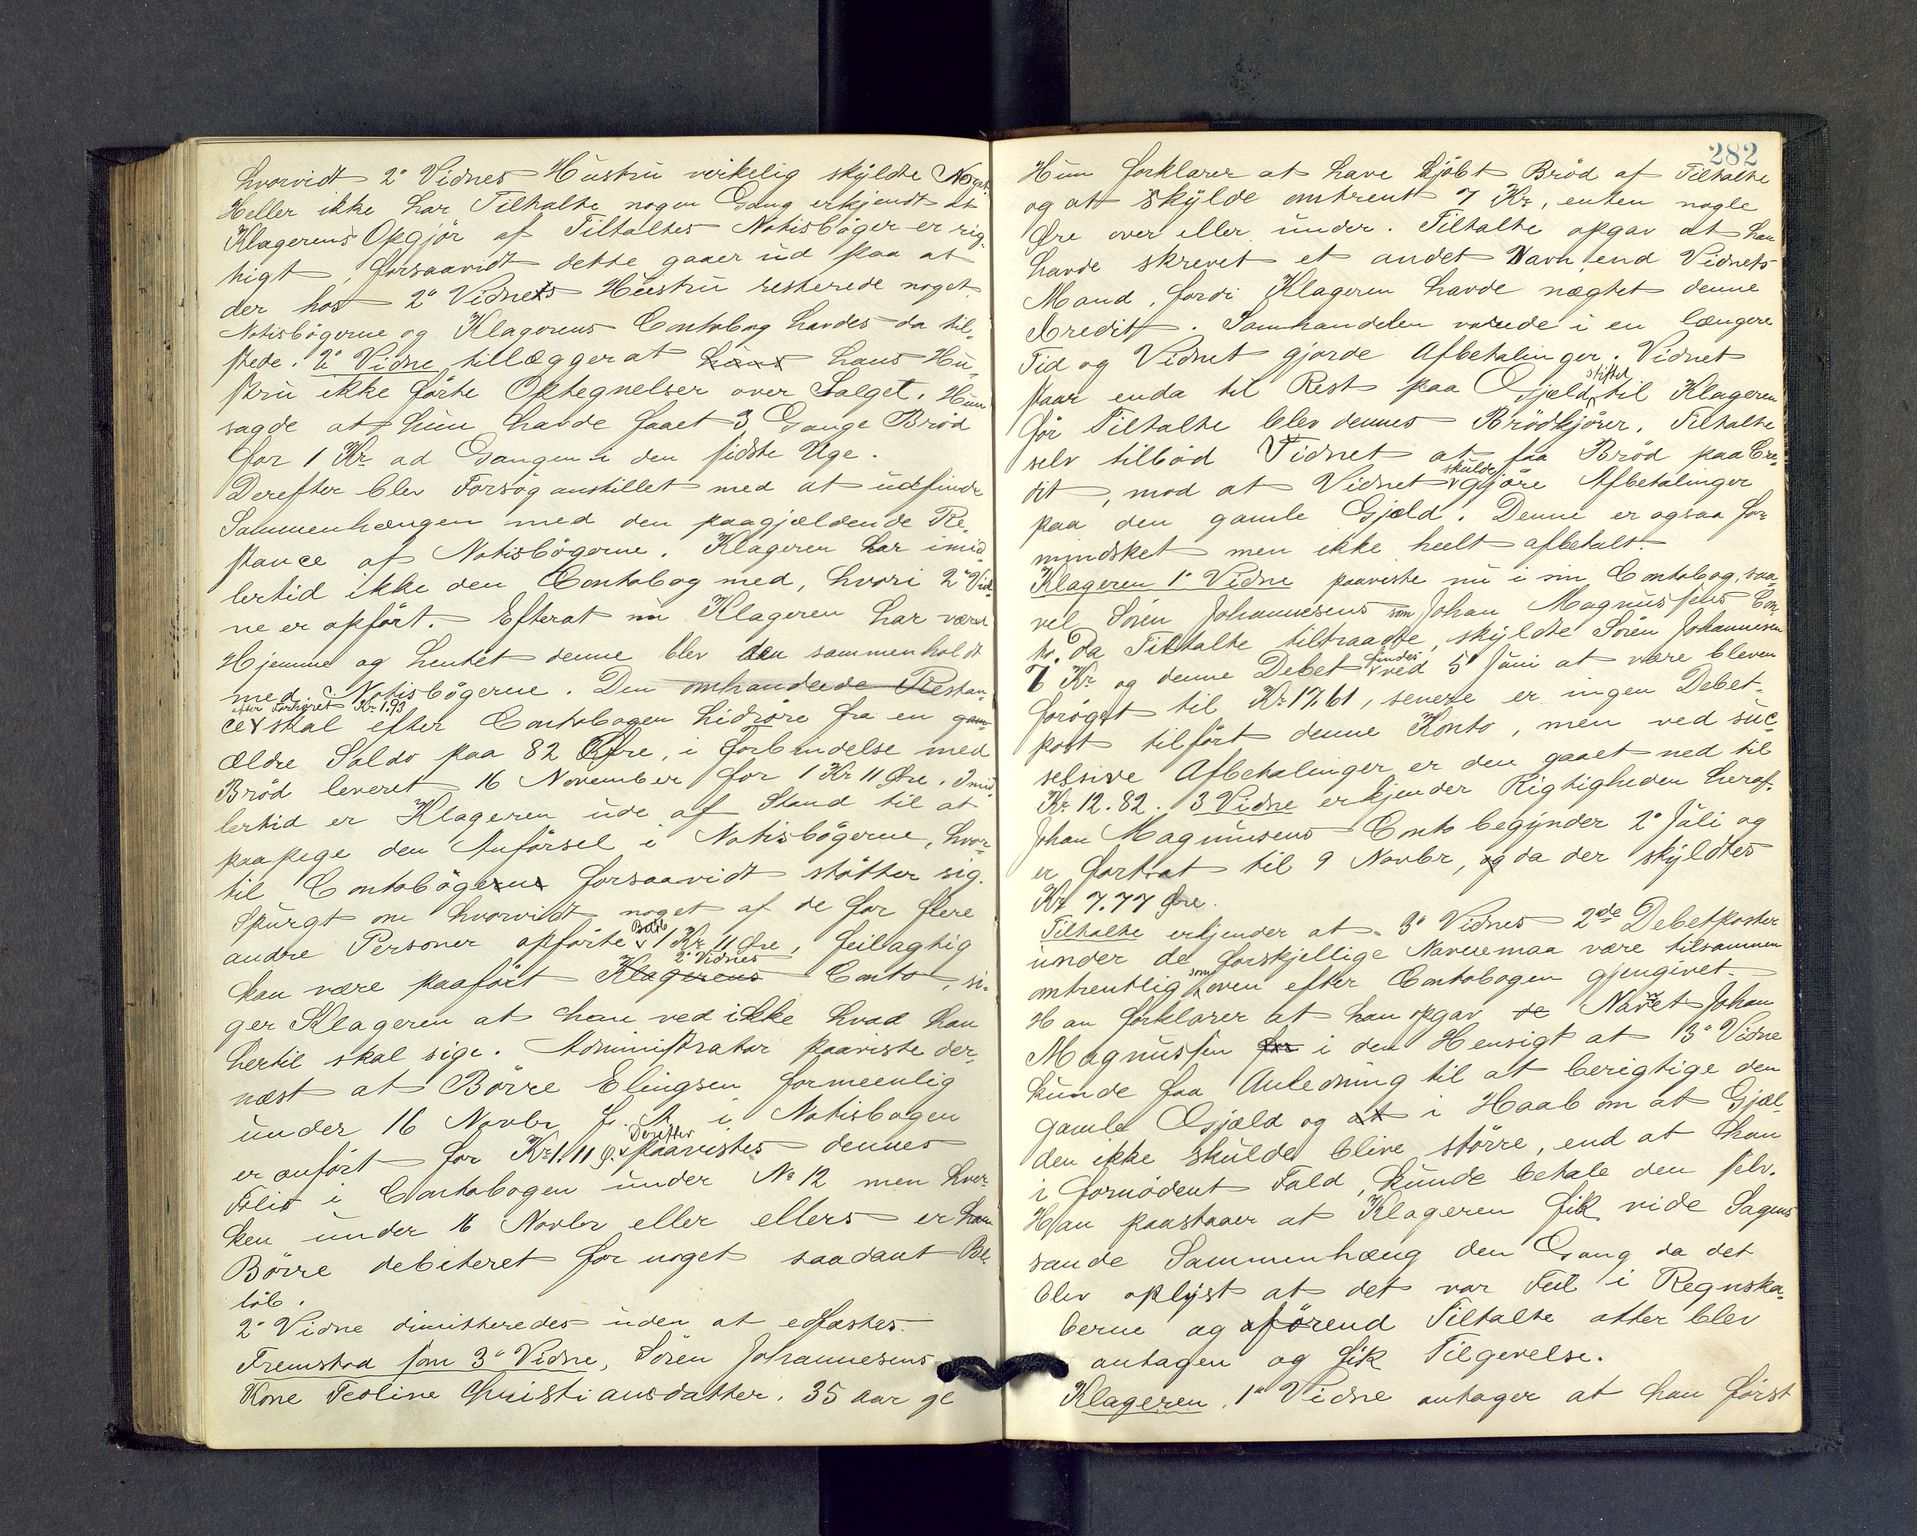 hvorvidt 2° Vidnes Hustru virkelig skyldte Noget.
Heller ikke har Tiltalte nogen Gang erkjendt at
Klagerens Opgjør af Tiltaltes Notisbøger er rig-
tigt, forsaavidt dette gaaer ud paa at
der hos 2° Vidnets Hustru resterede noget.
Notisbøgerne og Klagerens Contobog havdes da til-
stede. 2° Vidne tillægger at hans hans Hu-
stru ikke førte Optegnelser over Salget. Hun
sagde at hun havde faaet 3 Gange Brød
for 1 Kr ad Gangen i den sidste Uge.
Derefter blev Forsøg anstillet med at udfinde
Sammenhængen med den paagjældende Re-
stance af Notisbøgerne. Klageren har imid-
lertid ikke den Contobog med, hvori 2° Vid-
ne er opført. Efterat nu Klageren har været
Hjemme og hentet denne blev den sammenholdt
med Notisbøgerne. Den omhandlede Restan-
efter Forhøret Kr 1.93
ce skal efter Contobogen hidrøre fra en gam-
ældre Saldo paa 82 Øre, i Forbindelse med
Brød leveret 16 November for 1 Kr 11 Øre. Imid
lertid er Klageren ude af Stand til at
paapege den Anførsel i Notisbøgerne, hvor-
til Contobøgerne forsaavidt støtter sig.
Spurgt om hvorvidt noget af de for flere
andre Personer opførte Beløb 1 Kr 11 Øre, feilagtig
2° Vidnes
kan være paaført Klagerens Conto, si-
ger Klageren at han ved ikke hvad han
hertil skal sige. Administrator paaviste der-
næst at Børre Elingsen formeenlig
under 16 Novbr f. A. i Notisbogen
er anført for Kr 1.11 Ø. Derefter paavistes dennes
Folio i Contobogen under No 12 men hver-
ken under 16 Novbr eller ellers er han
Børre debiteret for noget saadant Be-
løb.
2° Vidne dimitteredes uden at edfæstes.
Fremstod som 3° Vidne, Søren Johannesens
Kone Teoline Christiansdatter. 35 Aar gl
282
Hun forklarer at have kjøbt Brød af Tiltalte
og at skylde omtrent 7 Kr, enten nogle
Øre over eller under. Tiltalte opgav at han
havde skrevet et andet Navn end Vidnets
Mand, fordi Klageren havde nægtet denne
Credit. Samhandelen varede i en længere
Tid og Vidnet gjorde Afbetalinger. Vidnet
staar enda til Rest paa Gjæld stiftet til Klageren
før Tiltalte blev dennes Brødkjører. Tiltalte
selv tilbød Vidnet at faa Brød paa Cre-
dit, mod at Vidnet skulde gjøre Afbetalinger
paa den gamle Gjæld. Denne er ogsaa for-
mindsket men ikke heelt afbetalt.
Klageren 1° Vidne paaviste nu i sin Contobog, saa-
vel Søren Johannesens som Johan Magnussens Con-
to. Da Tiltalte tiltraadte, skyldte Søren Johannesen
7 Kr og denne Debet findes ved 5° Juni at være bleven
forøget til Kr 17.61, senere er ingen Debet-
post tilført denne Konto, men ved suc-
sesive Afbetalinger er den gaaet ned til
Kr 12.82. 3 Vidne erkjender Rigtigheden heraf.
Johan Magnusens Conto begynder 2° Juli og
er fortsat til 9 Novbr, og da der skyldtes
Kr 7.77 Øre.
Tiltalte erkjender at 3° Vidnes 2de Debetposter
under de forskjellige Navne maa være tilsammen
omtrentlig som oven efter Contobogen gjengivet.
Han forklarer at han opgav de Navnet Johan
Magnussen for i den Hensigt at 3° Vidne
kunde faa Anledning til at berigtige den
gamle Gjæld og at i Haab om at Gjæl-
den ikke skulde blive større, end at han
i fornødent Fald, kunde betale den selv.
Han paastaaer at Klageren fik vide Sagens
sande Sammenhæng den Gang da det
blev oplyst at det var Feil i Regnska-
berne og aførend Tiltalte atter blev
antagen og fik Tilgivelse.
Klageren, 1° Vidne antager at han først